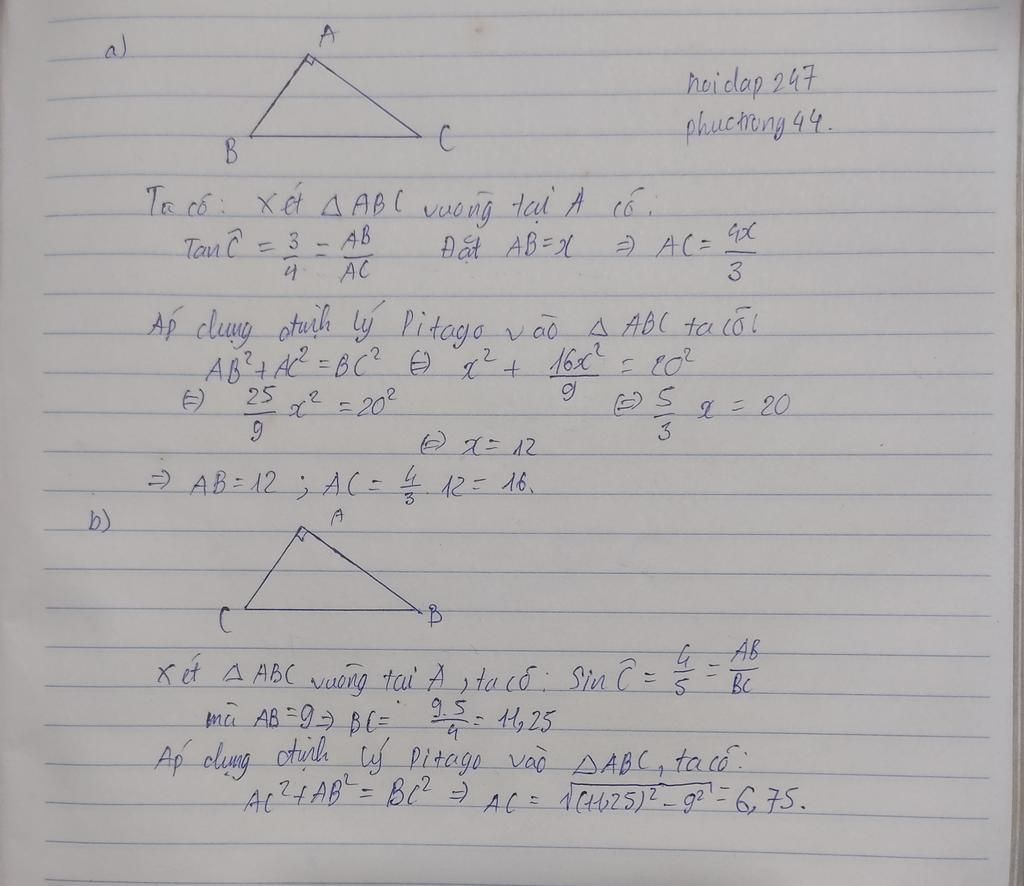 a)
A
hoidap 247
phuctrong 44.
B
C
Ta có: Xét △ABC vuông tại A có:
Tan Ĉ = 3/4 = AB/AC Đặt AB=x ⇒ AC= 4x/3
Áp dụng định lý Pitago vào △ABC ta có:
AB² + AC² = BC² ⇔ x² + 16x²/9 = 20²
⇔ 25/9 x² = 20² ⇔ 5/3 x = 20
⇔ x = 12
⇒ AB=12 ; AC = 4/3 . 12 = 16.
b)
A
C
B
Xét △ABC vuông tại A, ta có: Sin Ĉ = 4/5 = AB/BC
mà AB=9 ⇒ BC= 9.5/4 = 11,25
Áp dụng định lý Pitago vào △ABC, ta có:
AC² + AB² = BC² ⇒ AC = √((11,25)² - 9²) = 6,75.